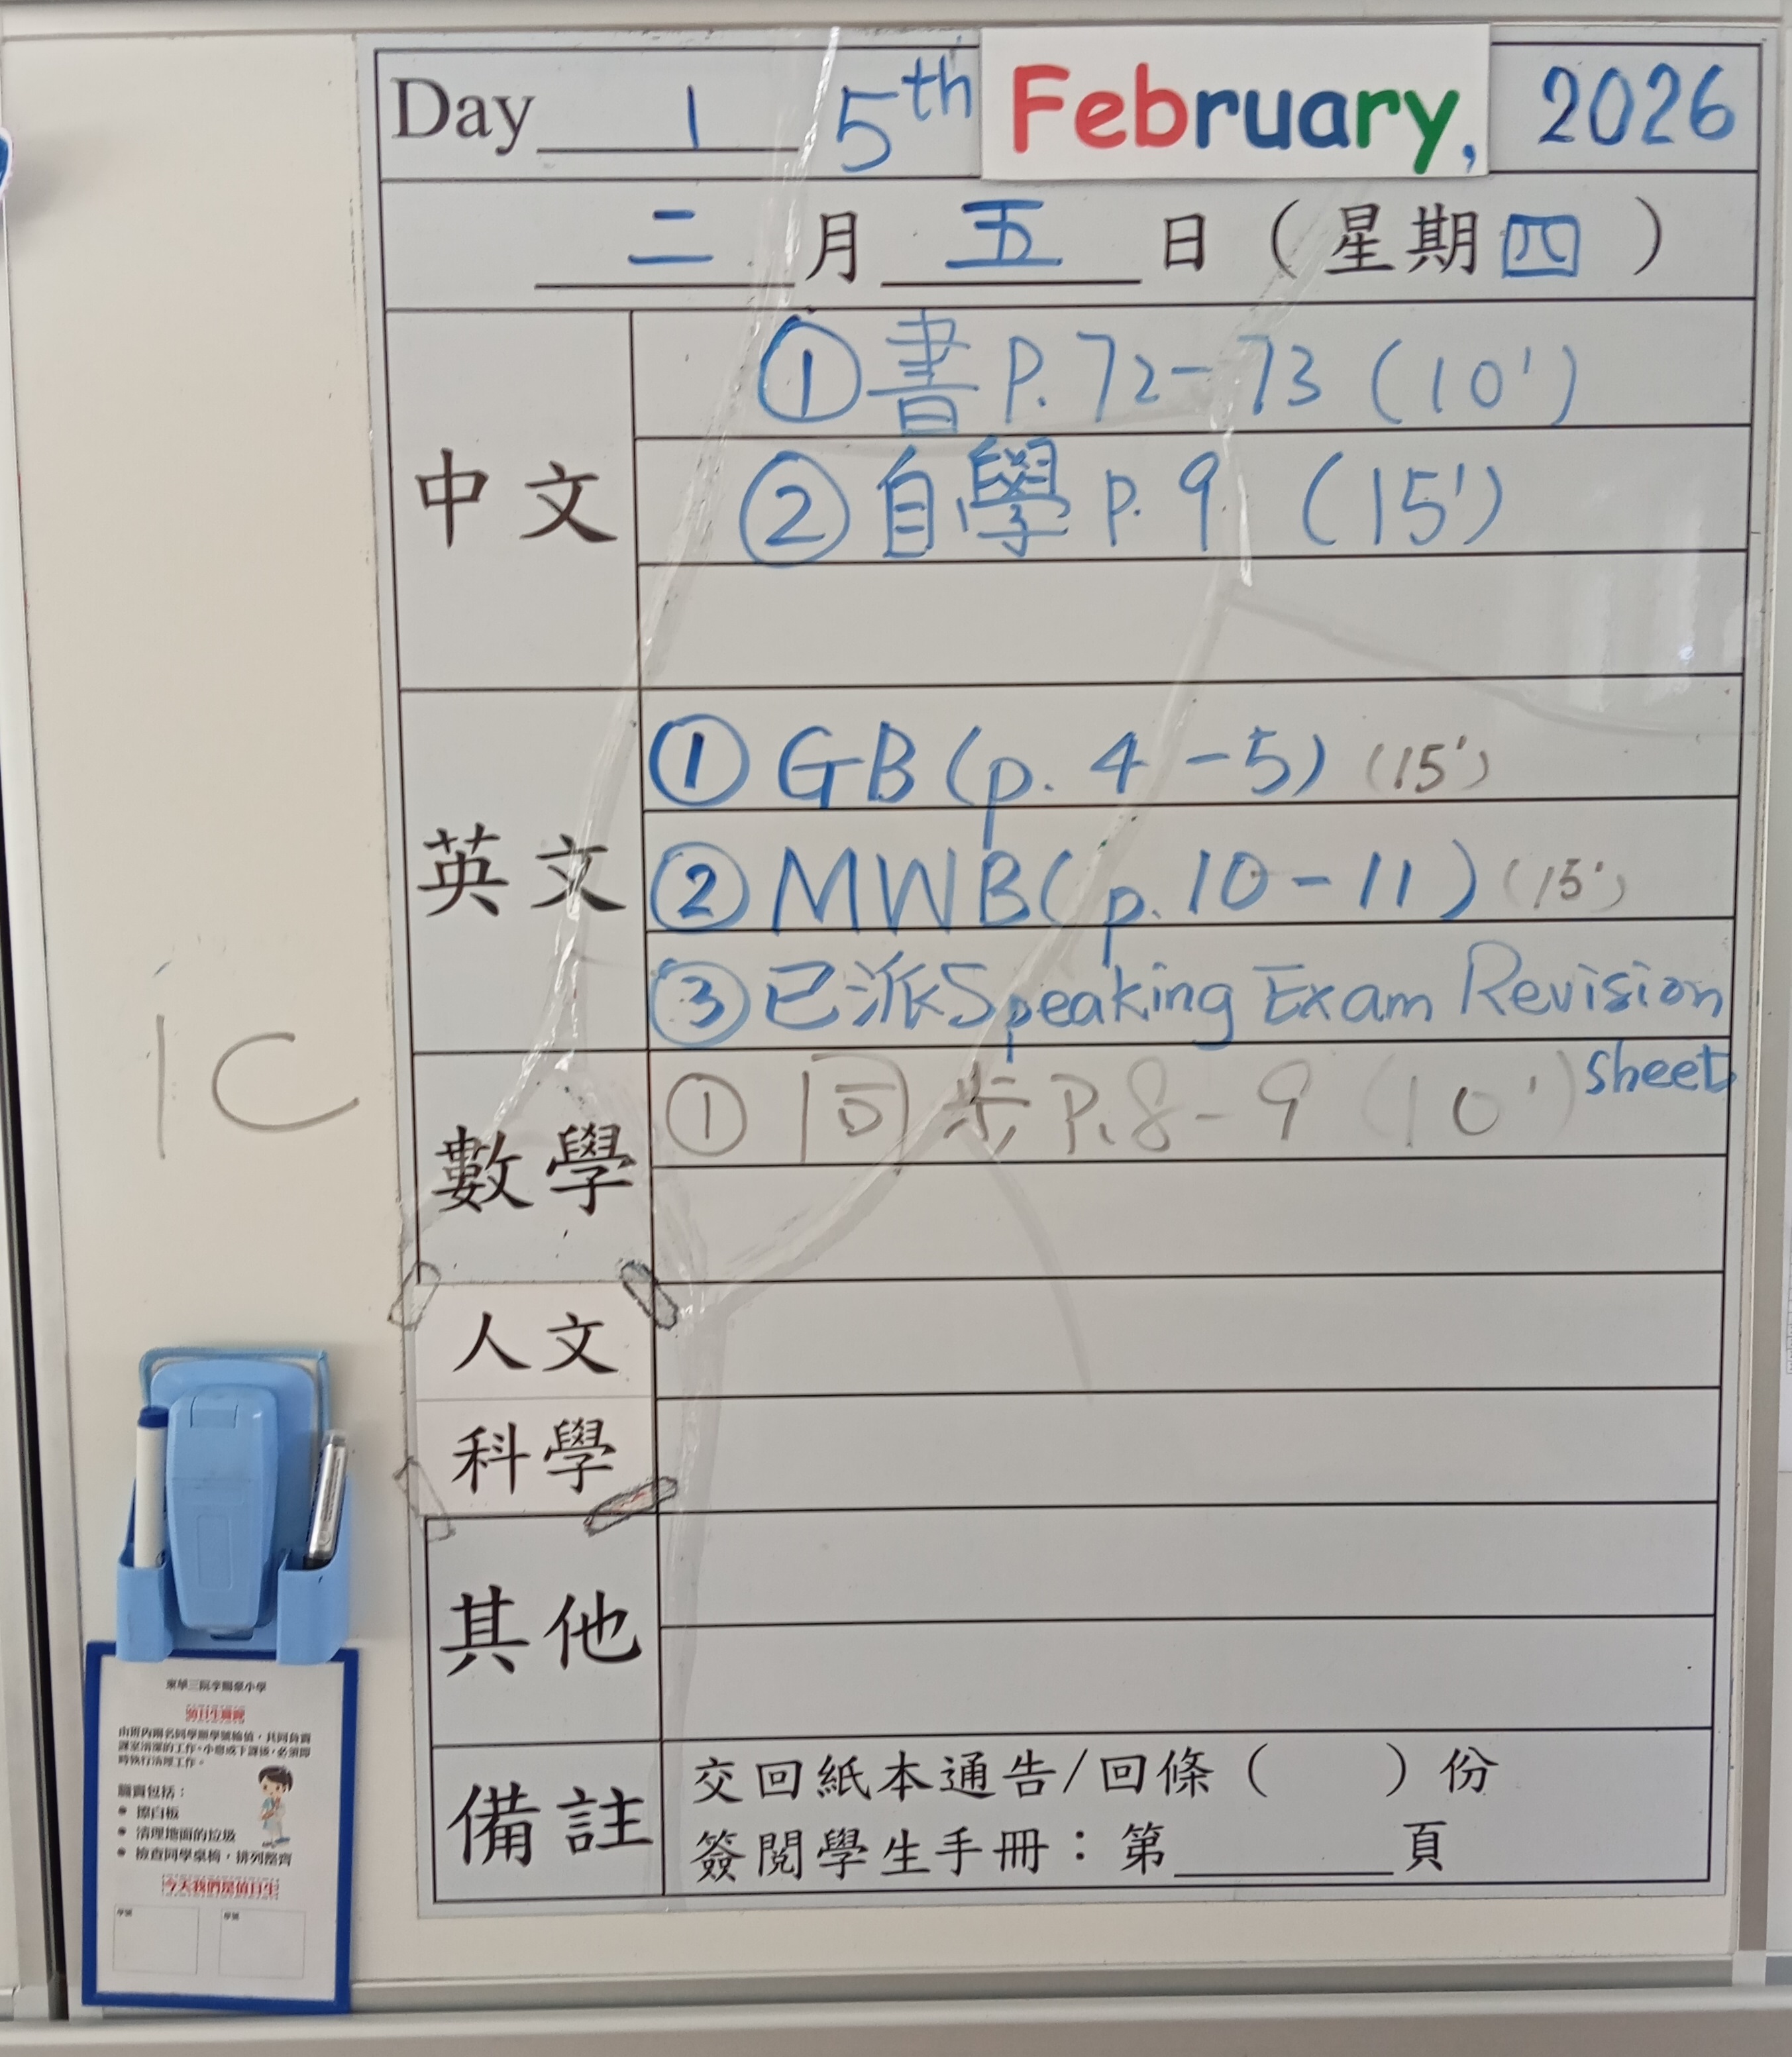 Day 1 5th February, 2026
二 月 五 日 ( 星期 四 )
中文
① 書 P. 72-73 (10')
② 自學 p. 9 (15')
英文
① GB (p. 4-5) (15')
② MWB (p. 10-11) (15')
③ 已派 Speaking Exam Revision
sheet
數學
① 同步 P.8-9 (10')
人文
科學
其他
備註
交回紙本通告/回條 ( ) 份
簽閱學生手冊：第 頁
1C
東華三院李賜豪小學
值日生職責
由班內兩名同學順學號輪值，共同負責
課室清潔的工作。小息或下課後，必須即
時執行清潔工作。
職責包括：
擦白板
清理地面的垃圾
檢查同學桌椅，排列整齊
今天我們是值日生
學號 學號